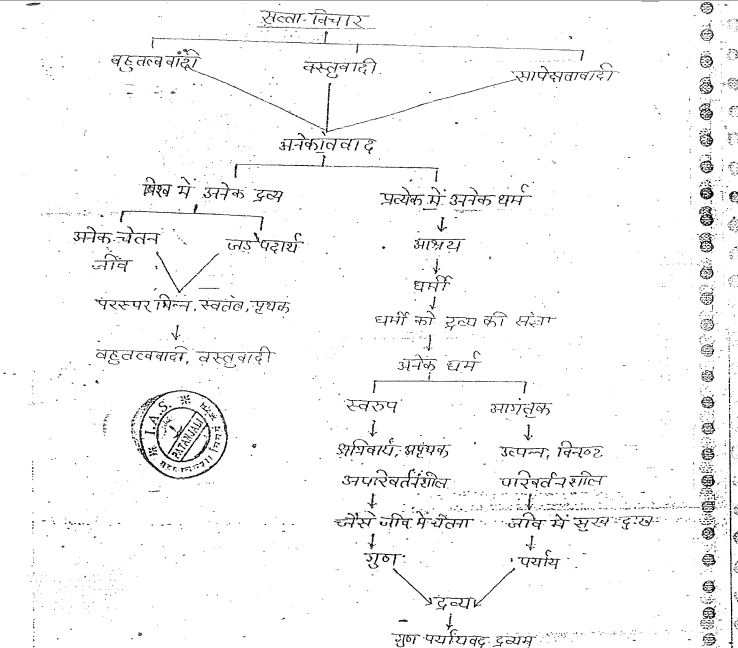 सत्ता-विचार
बहुतत्ववादी वस्तुवादी सापेक्षतावादी
अनेकांतवाद
विश्व में अनेक द्रव्य प्रत्येक में अनेक धर्म
अनेक चेतन जड़ पदार्थ आश्रय
जीव
धर्मी
परस्पर भिन्न, स्वतंत्र, पृथक धर्मी को द्रव्य की संज्ञा
बहुतत्ववादी, वस्तुवादी अनेक धर्म
स्वरुप आगंतुक
I.A.S
PATANJALI
अपरिवार्य, अपृथक उत्पन्न, विनष्ट
अपरिवर्तनशील परिवर्तनशील
जैसे जीव में चेतना जीव में सुख दुःख
गुण पर्याय
द्रव्य
गुण पर्यायवद द्रव्यम